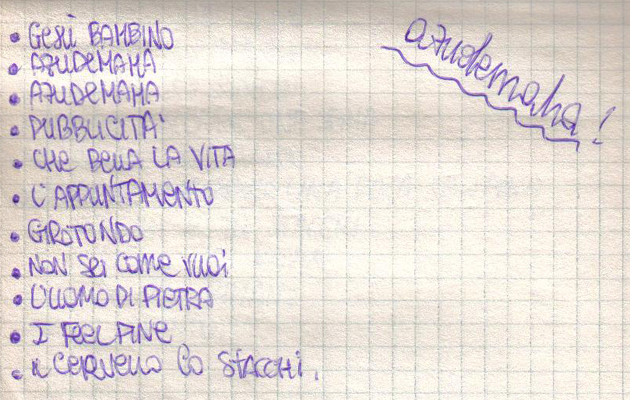 • Gesù BAMBINO
• AZUDEMAHA
• AZUDEMAHA
• PUBBLICITA'
• CHE BELLA LA VITA
• L'APPUNTAMENTO
• GIROTONDO
• NON Sei come vuoi
• L'UOMO DI PIETRA
• I FEEL FINE
• il CERVELLO LO STACCHI.
azudemaha!